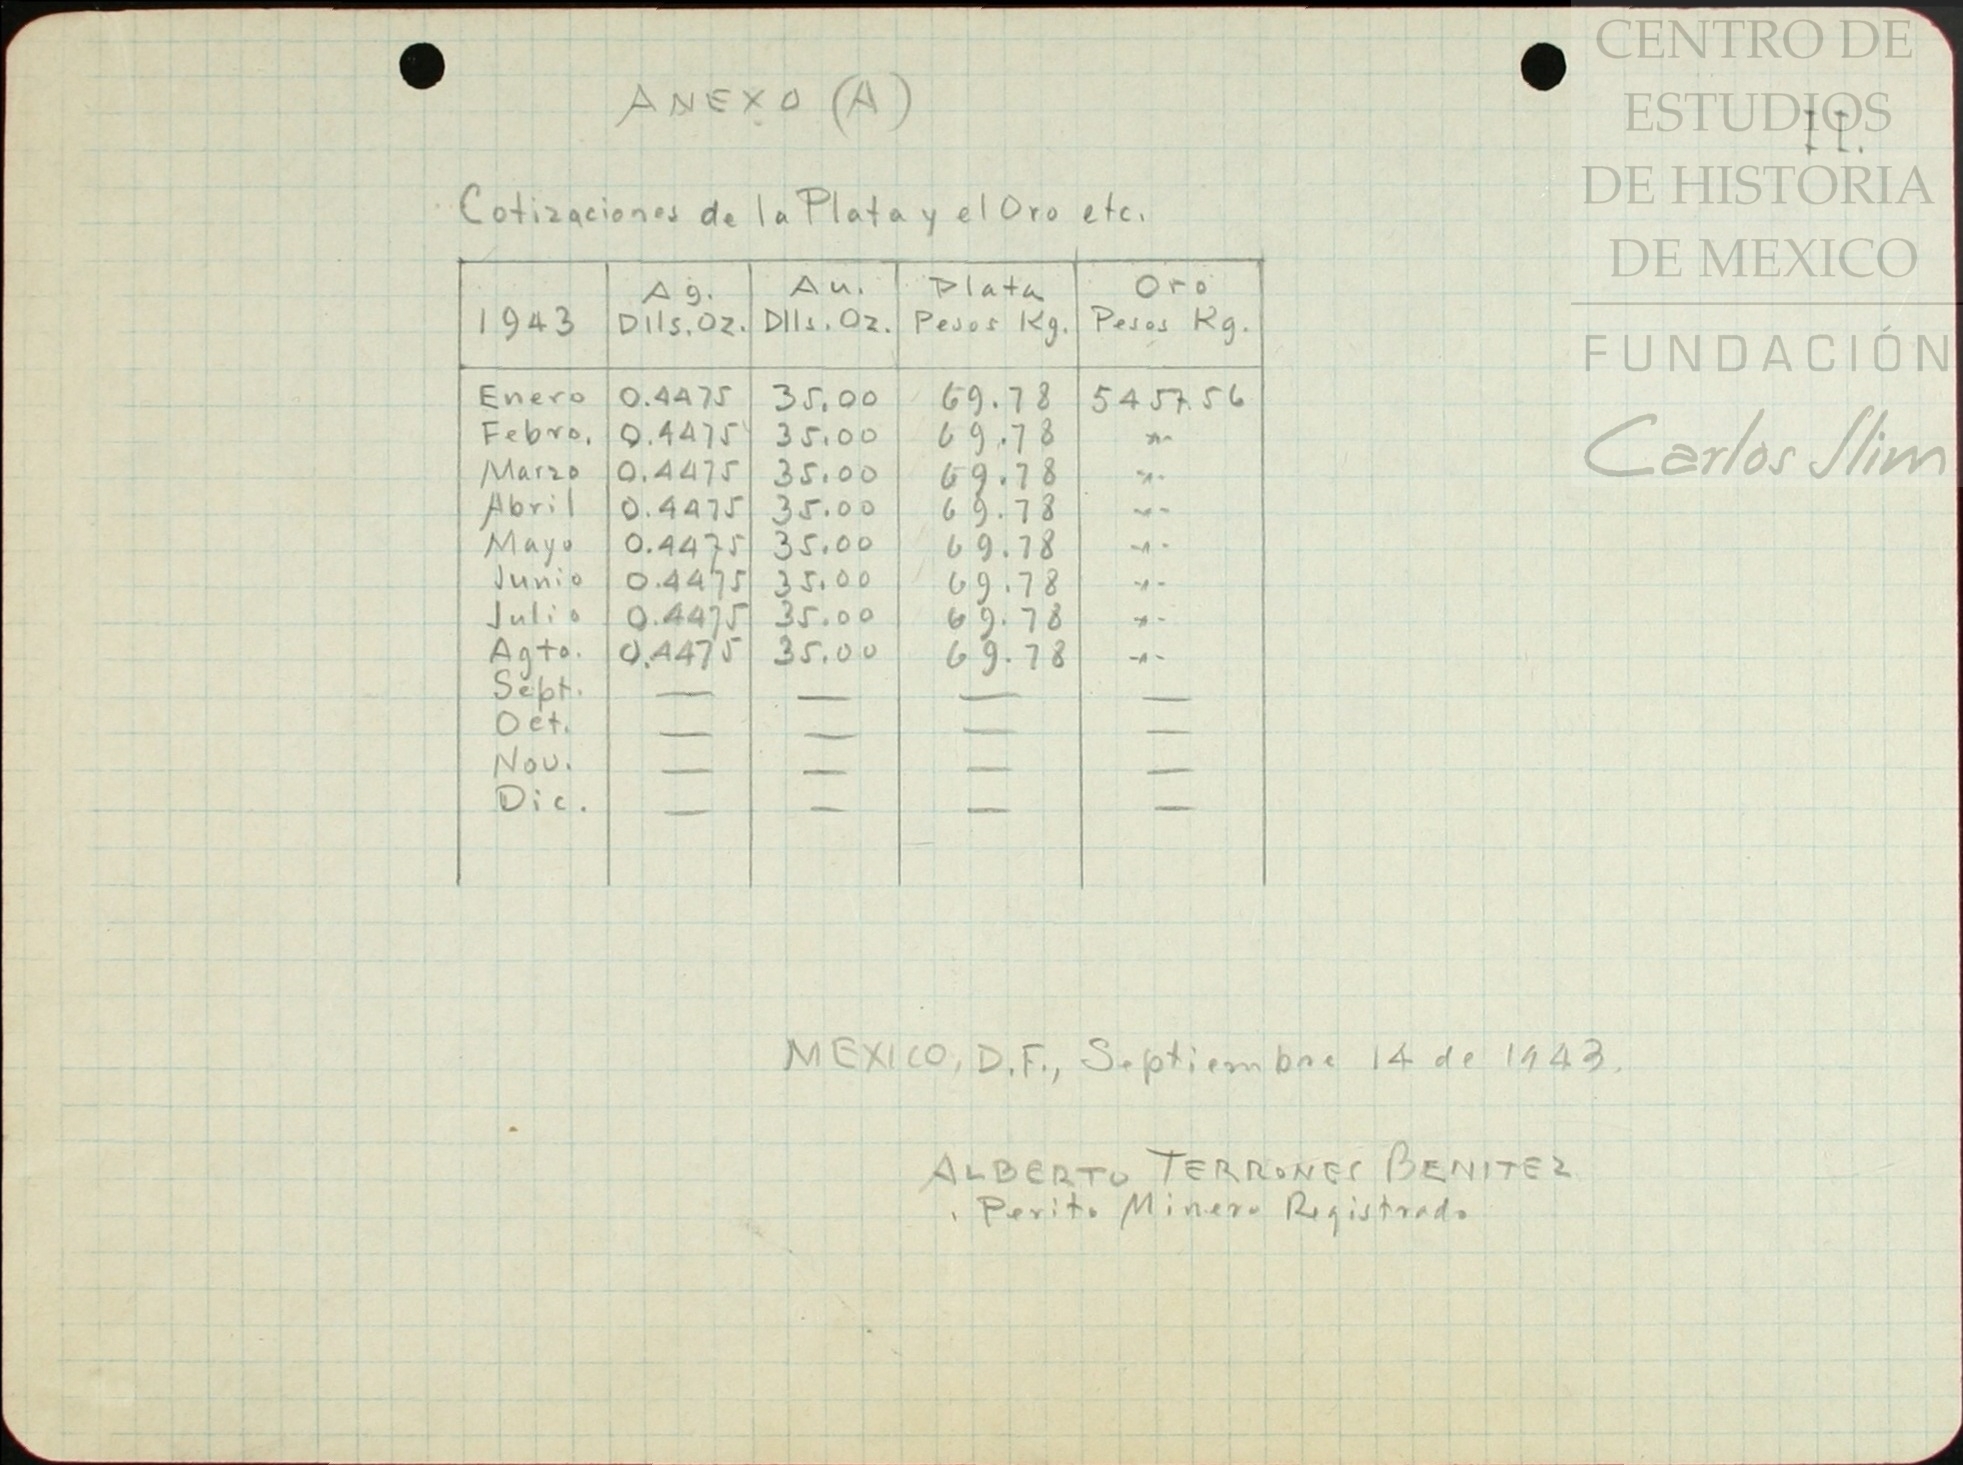 CENTRO DE
ESTUDIOS
DE HISTORIA
DE MEXICO
FUNDACIÓN
Carlos Slim
II.
ANEXO (A)
Cotizaciones de la Plata y el Oro etc.
1943 | Ag. Dlls. Oz. | Au. Dlls. Oz. | Plata Pesos Kg. | Oro Pesos Kg.
Enero 0.4475 35.00 69.78 5457.56
Febro. 0.4475 35.00 69.78 -"-
Marzo 0.4475 35.00 69.78 -"-
Abril 0.4475 35.00 69.78 -"-
Mayo 0.4475 35.00 69.78 -"-
Junio 0.4475 35.00 69.78 -"-
Julio 0.4475 35.00 69.78 -"-
Agto. 0.4475 35.00 69.78 -"-
Sept. — — — —
Oct. — — — —
Nov. — — — —
Dic. — — — —
MEXICO, D.F., Septiembre 14 de 1943.
ALBERTO TERRONES BENITEZ
Perito Minero Registrado